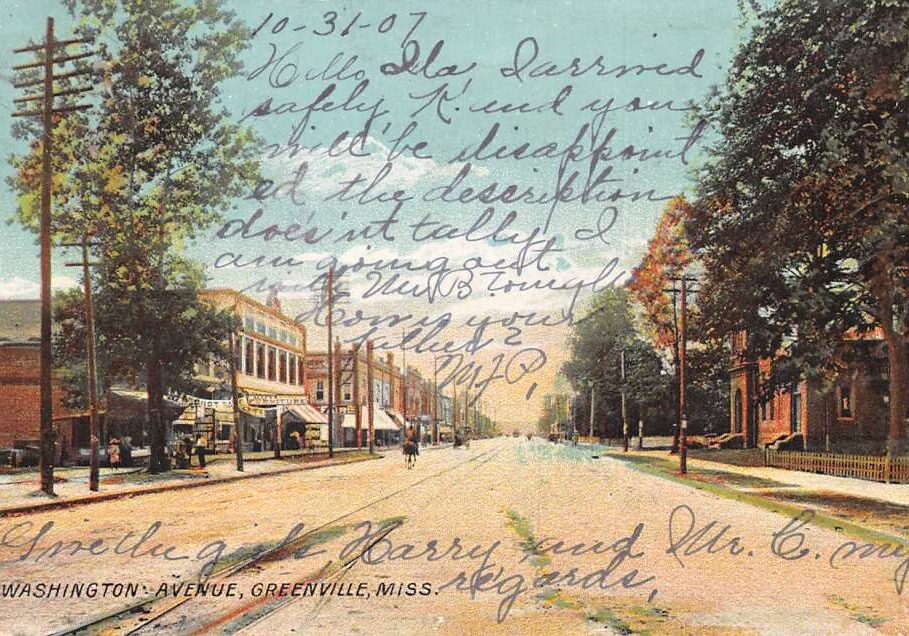 10-31-07
Hello Ila I arrived
safely K. and you
will be disappoint
ed the description
does'nt tally I
am going out
with Mr B Tonight
How is your
father?
M.J.P,
Give the girls Harry and Mr. C. my
regards,
WASHINGTON AVENUE, GREENVILLE, MISS.